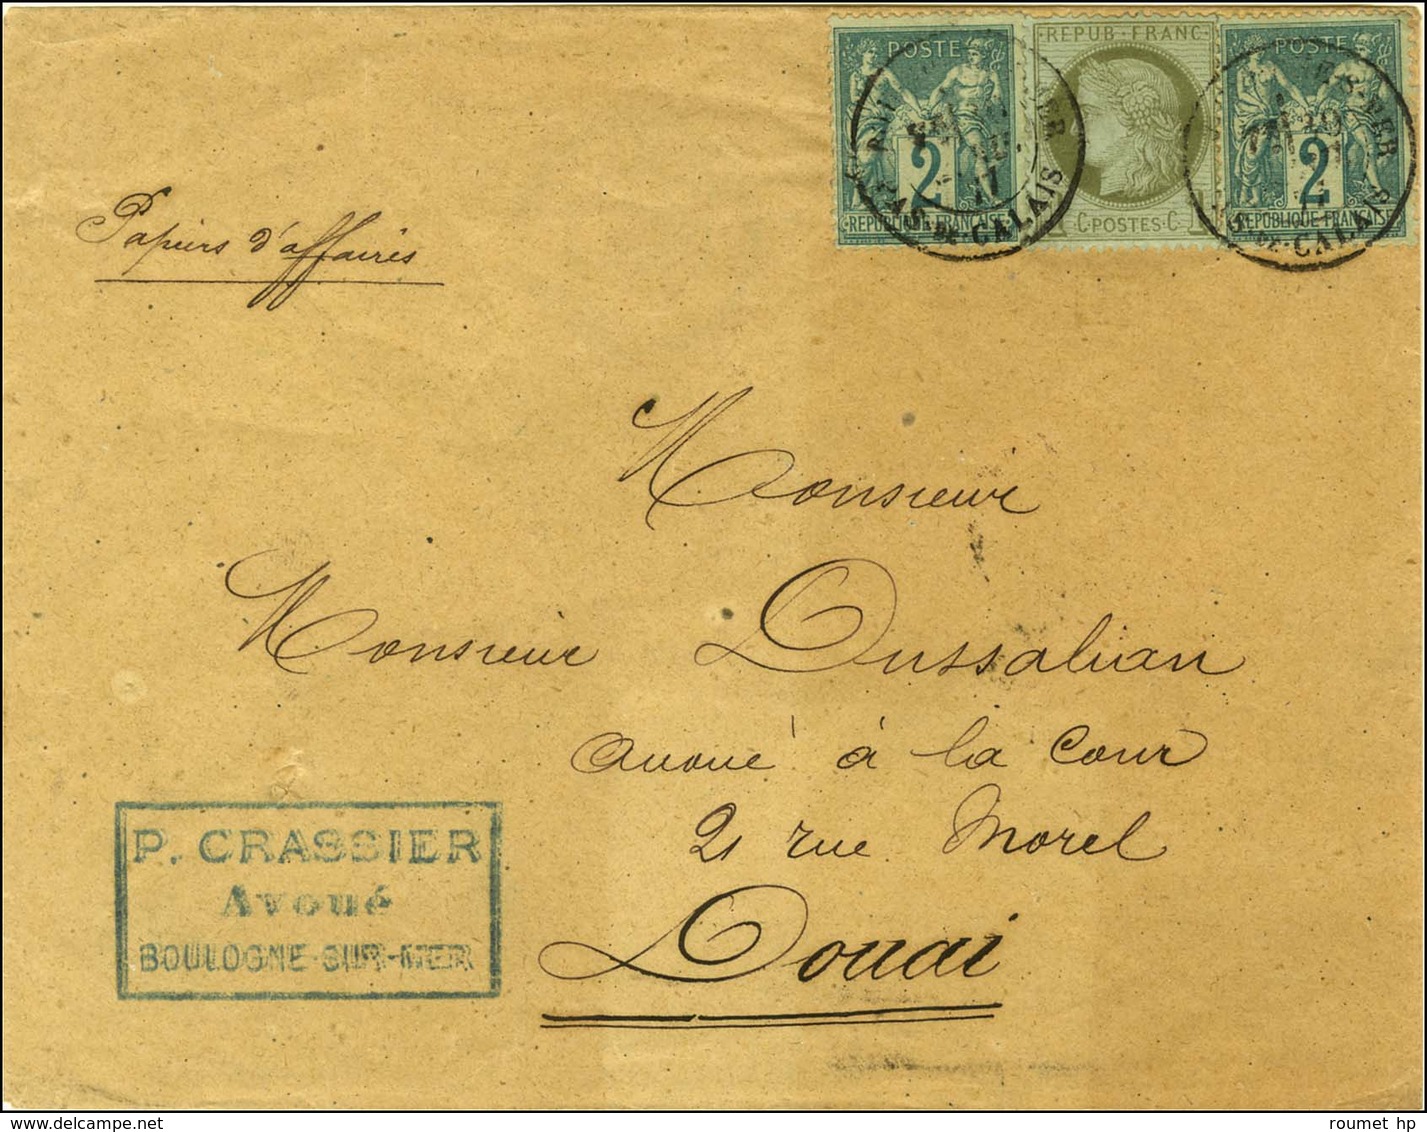 POSTE
2
REPUBLIQUE FRANÇAISE
REPUB·FRANC
C·POSTES·C
POSTE
2
REPUBLIQUE FRANÇAISE
PAS-DE-CALAIS
R-S-MER
DE-CALAIS
Papiers d'affaires
Monsieur
Monsieur Dussalian
avoué à la Cour
21 rue Morel
Douai
P. CRASSIER
Avoué
BOULOGNE-SUR-MER
roumet hp